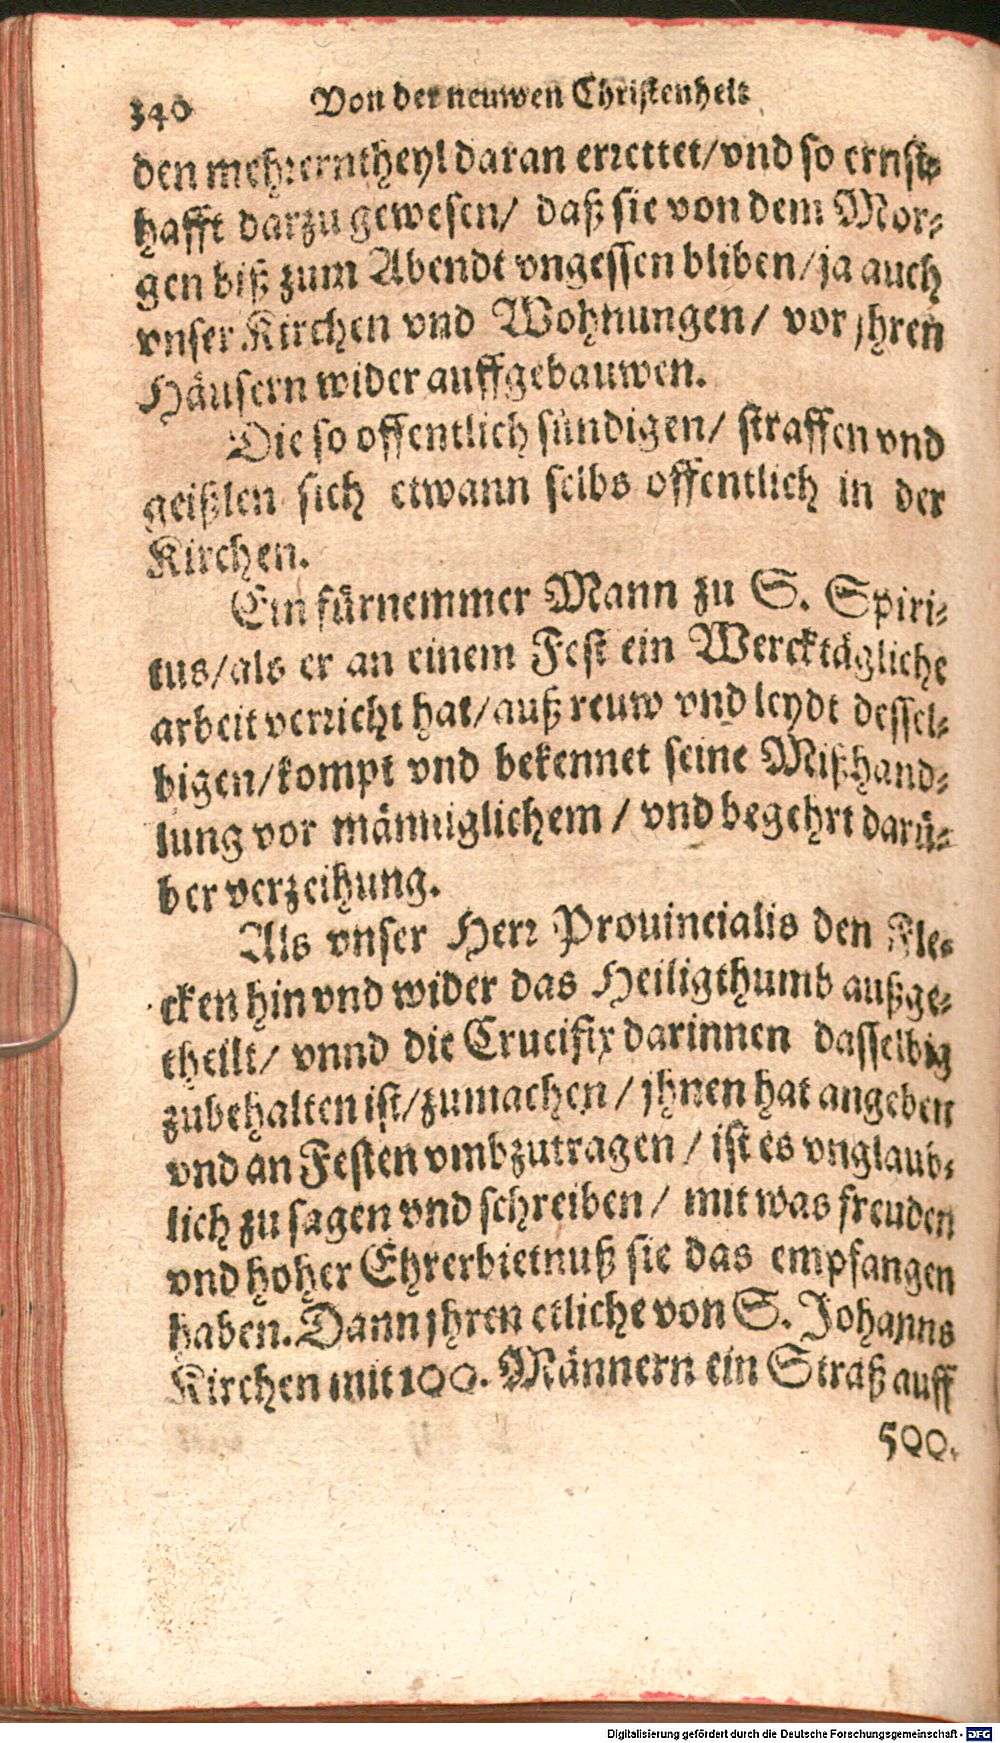 340 Von der neuwen Christenheit
den mehrerntheyl daran errettet/vnd so ernst-
hafft darzu gewesen/ daß sie von dem Mor-
gen biß zum Abendt vngessen bliben/ja auch
vnser Kirchen vnd Wohnungen/ vor jhren
Häusern wider auffgebauwen.
Die so offentlich sündigen/ straffen vnd
geißlen sich etwann selbs offentlich in der
Kirchen.
Ein fürnemmer Mann zu S. Spiri-
tus/als er an einem Fest ein Wercktägliche
arbeit verricht hat/auß reuw vnd leydt dessel-
bigen/kompt vnd bekennet seine Mißhand-
lung vor männiglichem/ vnd begehrt darü-
ber verzeihung.
Als vnser Herr Prouincialis den Fle-
cken hin vnd wider das Heiligthumb außge-
theilt/ vnnd die Crucifix darinnen dasselbig
zubehalten ist/zumachen/ jhnen hat angeben
vnd an Festen vmbzutragen/ ist es vnglaub-
lich zu sagen vnd schreiben/ mit was freuden
vnd hoher Ehrerbietnuß sie das empfangen
haben. Dann jhren etliche von S. Johanns
Kirchen mit 100. Männern ein Straß auff
500.
Digitalisierung gefördert durch die Deutsche Forschungsgemeinschaft - DFG